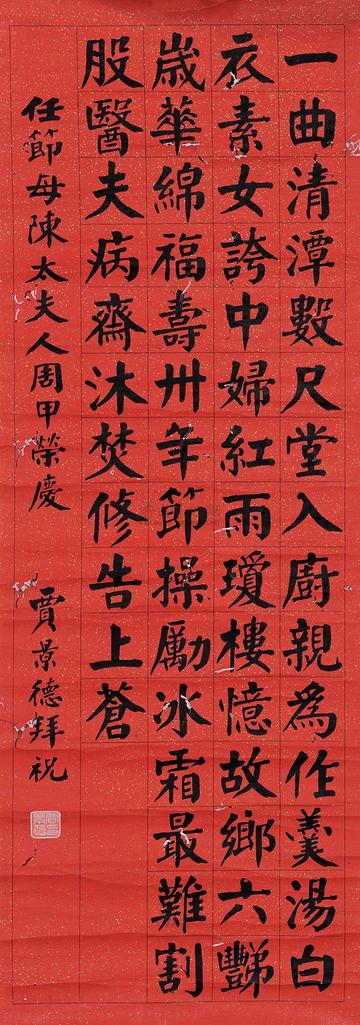 一曲清潭數尺堂入廚親為作羹湯白
衣素女誇中婦紅雨瓊樓憶故鄉六豒
嵗華綿福壽卅年節操勵冰霜最難割
股醫夫病齋沐焚修告上蒼
任節母陳太夫人周甲榮慶 賈景德拜祝